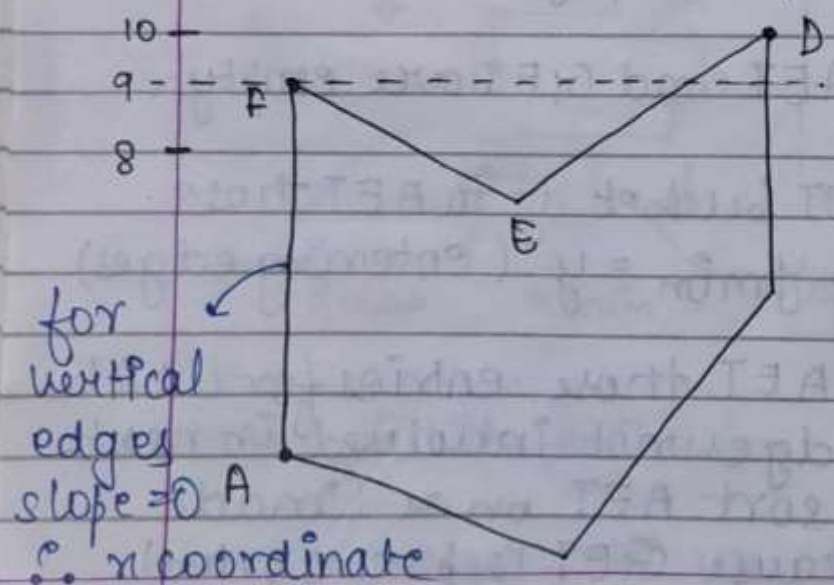 10
D
9
F
8
E
for
vertical
edges
slope=0
A
∴ x coordinate